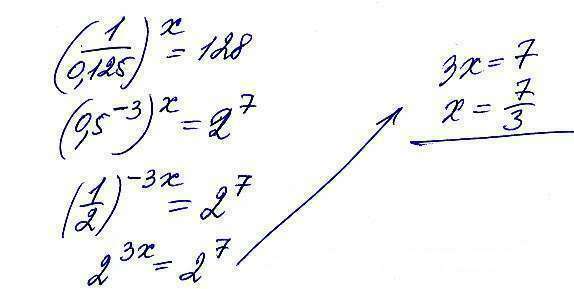 (1/0,125)^x = 128
(0,5^-3)^x = 2^7
(1/2)^-3x = 2^7
2^3x = 2^7
3x = 7
x = 7/3